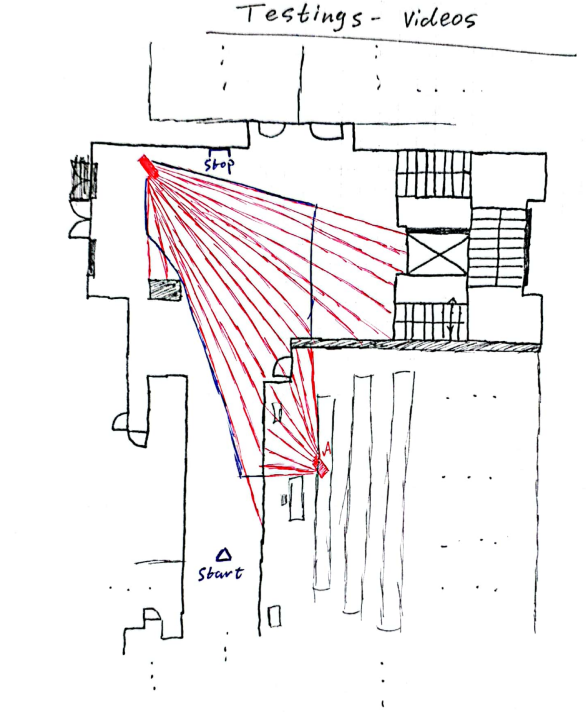 Testings - Videos
Stop
A
Start